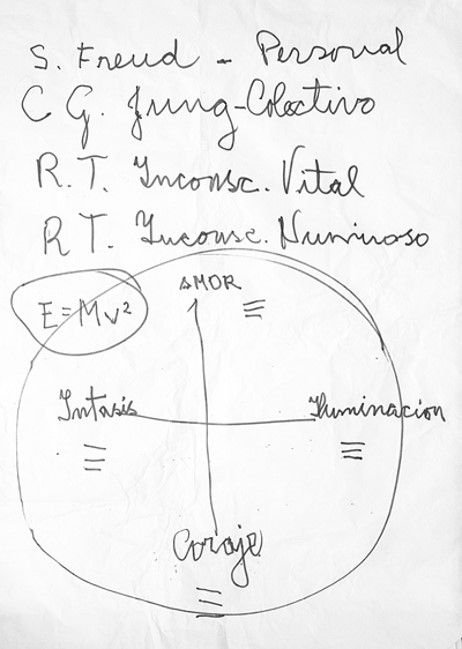 S. Freud - Personal
C G. Jung-Colectivo
R.T. Inconsc. Vital
R T. Inconsc. Numinoso
AMOR
E=Mv²
Intasis
Iluminacion
Coraje